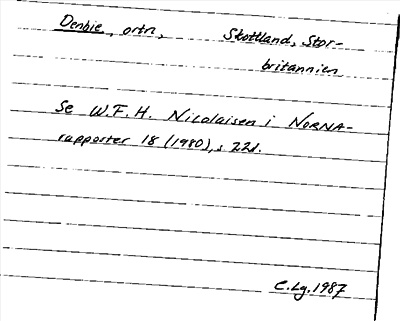 Denbie, ortn, Skottland, Stor-
britannien
Se W.F.H. Nicolaisen i NORNA-
rapporter 18 (1980), s 221.
C.Lg. 1987